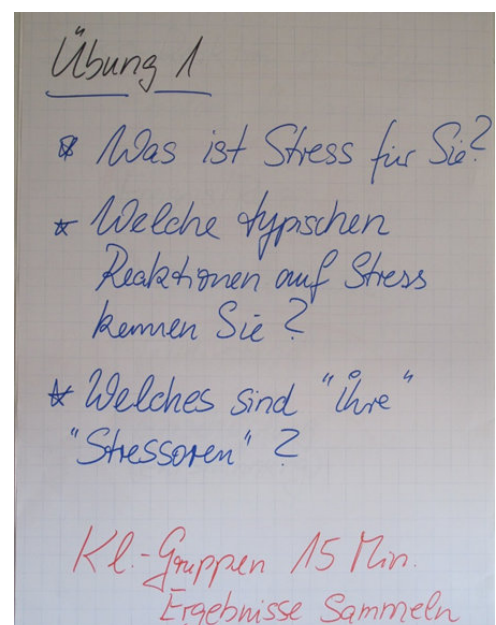 Übung 1
* Was ist Stress für Sie?
* Welche typischen
Reaktionen auf Stress
kennen Sie?
* Welches sind "ihre"
"Stressoren"?
Kl.-Gruppen 15 Min.
Ergebnisse Sammeln